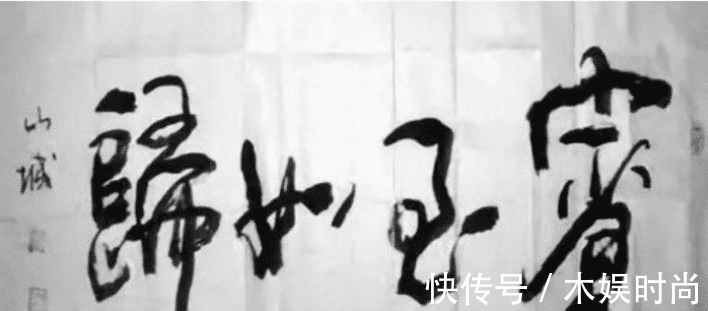 賓至如歸
山城
快传号 / 木娱时尚